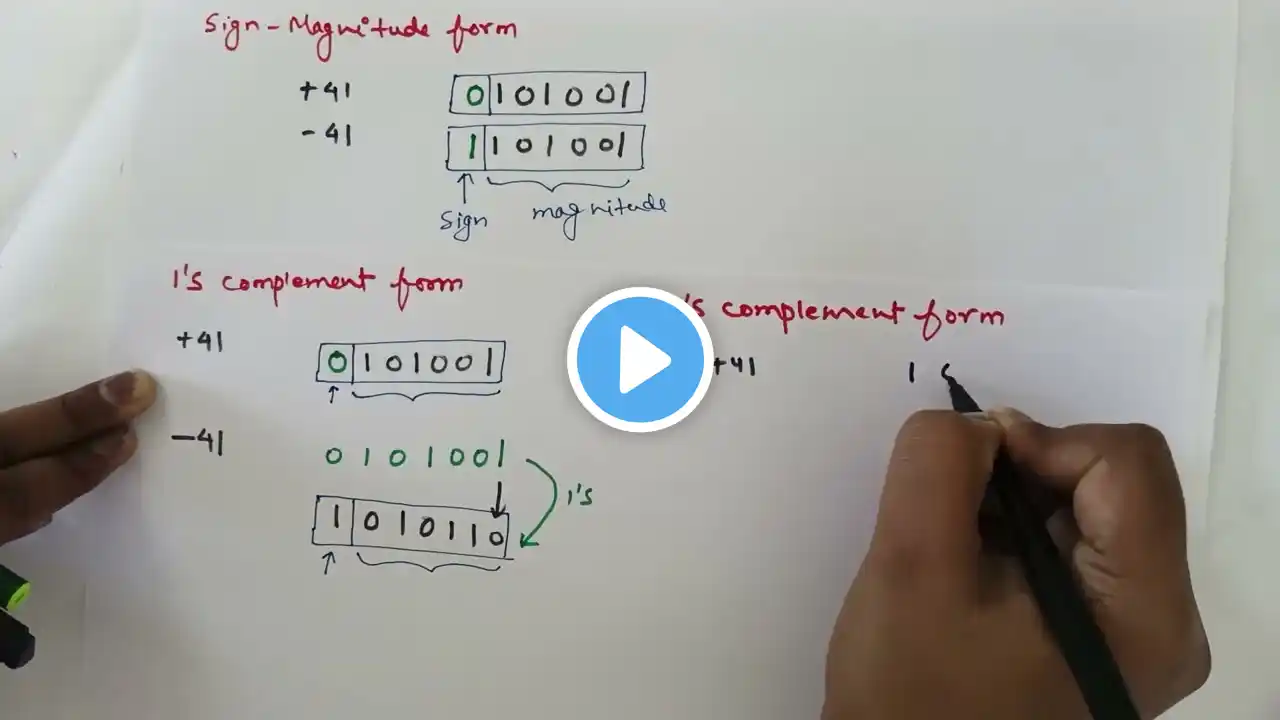 Sign-Magnitude form
+41 0101001
-41 1101001
Sign magnitude
1's complement form
+41 0101001
-41 0101001
1's
1010110
's complement form
+41 1